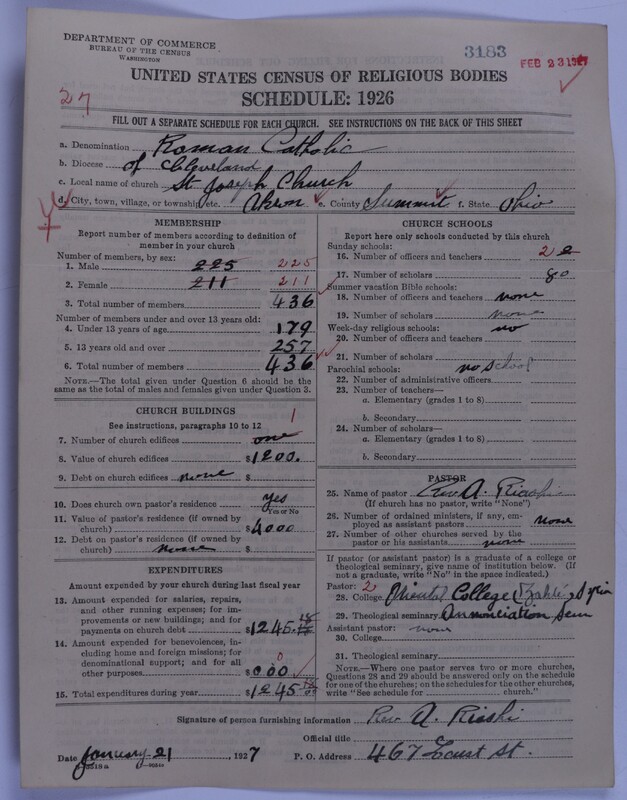 DEPARTMENT OF COMMERCE
BUREAU OF THE CENSUS
WASHINGTON
3183
FEB 23 1927
UNITED STATES CENSUS OF RELIGIOUS BODIES
27
SCHEDULE: 1926
FILL OUT A SEPARATE SCHEDULE FOR EACH CHURCH. SEE INSTRUCTIONS ON THE BACK OF THIS SHEET
a. Denomination Roman Catholic
b. Diocese of Cleveland
c. Local name of church St Joseph Church
d. City, town, village, or township, etc. Akron e. County Summit f. State Ohio
MEMBERSHIP
Report number of members according to definition of
member in your church
Number of members, by sex:
1. Male 225 225
2. Female 211 211
3. Total number of members 436
Number of members under and over 13 years old:
4. Under 13 years of age 179
5. 13 years old and over 257
6. Total number of members 436
NOTE.—The total given under Question 6 should be
the same as the total of males and females given under Question 3.
CHURCH BUILDINGS
See instructions, paragraphs 10 to 12
1
7. Number of church edifices one
8. Value of church edifices $ 1200.
9. Debt on church edifices none $
10. Does church own pastor's residence yes
Yes or No
11. Value of pastor's residence (if owned by
church) $ 4000
12. Debt on pastor's residence (if owned by
church) none $
EXPENDITURES
Amount expended by your church during last fiscal year
13. Amount expended for salaries, repairs,
and other running expenses; for im-
provements or new buildings; and for
payments on church debt $ 1245.
14. Amount expended for benevolences, in-
cluding home and foreign missions; for
denominational support; and for all
other purposes $ 000
0
15. Total expenditures during year $ 1245
CHURCH SCHOOLS
Report here only schools conducted by this church
Sunday schools:
16. Number of officers and teachers 2
17. Number of scholars 80
Summer vacation Bible schools:
18. Number of officers and teachers none
19. Number of scholars none
Week-day religious schools: no
20. Number of officers and teachers
21. Number of scholars
Parochial schools: no school
22. Number of administrative officers
23. Number of teachers—
a. Elementary (grades 1 to 8)
b. Secondary
24. Number of scholars—
a. Elementary (grades 1 to 8)
b. Secondary
PASTOR
25. Name of pastor Rev A. Riashi
(If church has no pastor, write "None")
26. Number of ordained ministers, if any, em-
ployed as assistant pastors none
27. Number of other churches served by the
pastor or his assistants none
If pastor (or assistant pastor) is a graduate of a college or
theological seminary, give name of institution below. (If
not a graduate, write "No" in the space indicated.)
Pastor: 2
28. College Oriental College Zahlé, Syria
29. Theological seminary Annonciation Sem
Assistant pastor: none
30. College
31. Theological seminary
NOTE.—Where one pastor serves two or more churches,
Questions 28 and 29 should be answered only on the schedule
for one of the churches; on the schedules for the other churches,
write "See schedule for church."
Signature of person furnishing information Rev A. Riashi
Official title
Date January 21, 1927 P. O. Address 467 Locust st.